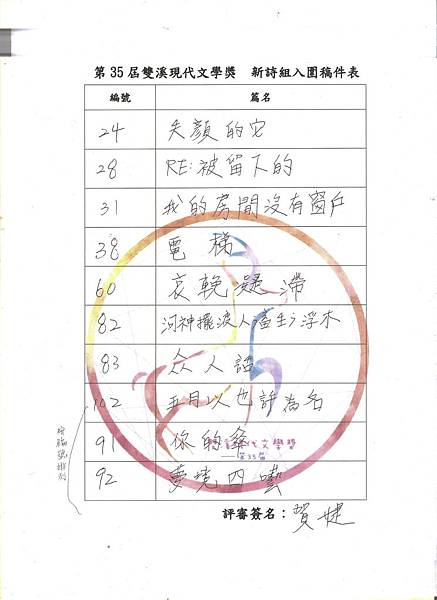 第35屆雙溪現代文學獎 新詩組入圍稿件表
編號 篇名
24 失顏的它
28 RE:被留下的
31 我的房間沒有窗戶
38 電梯
60 哀輓凝滯
82 河神擺渡人〉畜生〉浮木
83 众人話
102 五月以也許為名
91 你的傘
92 夢境四囈
按編號排列
代文學獎
第35屆
評審簽名：賀婕